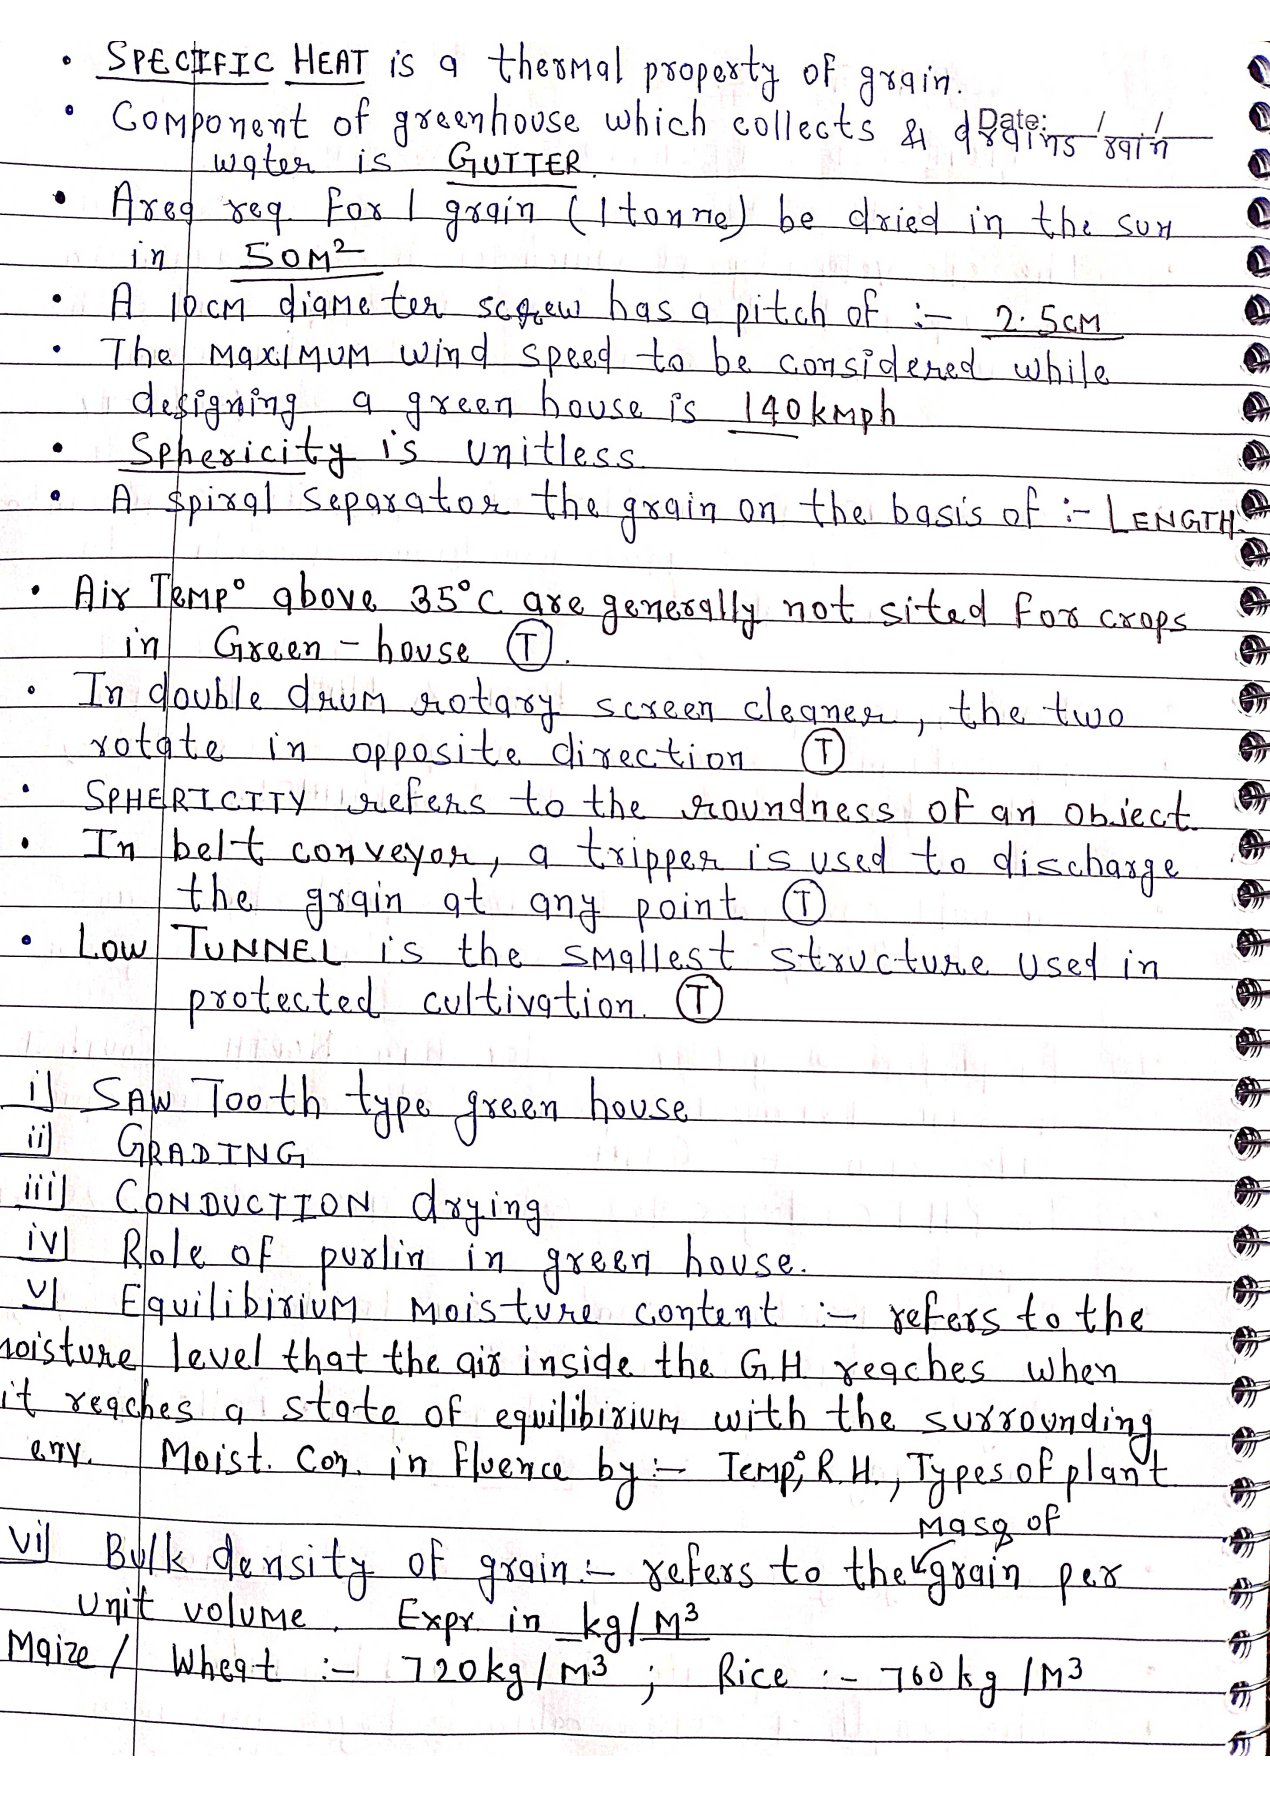 • SPECIFIC HEAT is a thermal property of grain.
Date: / /
• Component of greenhouse which collects & drains rain
water is GUTTER.
• Area req. For 1 grain (1 tonne) be dried in the sun
in 50M²
• A 10CM diameter screw has a pitch of :- 2.5CM
• The MAXIMUM wind speed to be considered while
designing a green house is 140kmph
• Sphericity is unitless.
• A spiral separator the grain on the basis of :- LENGTH.
• Air Temp° above 35°C are generally not sited For crops
in Green-house (T).
• In double drum rotary screen cleaner, the two
rotate in opposite direction (T)
• SPHERICITY refers to the roundness of an object.
• In belt conveyor, a tripper is used to discharge
the grain at any point (T)
• Low TUNNEL is the smallest structure used in
protected cultivation. (T)
i) SAW Tooth type green house
ii) GRADING
iii) CONDUCTION drying
iv) Role of purlin in green house.
v) Equilibirium moisture content :- refers to the
moisture level that the air inside the G.H reaches when
it reaches a state of equilibirium with the surrounding
env. Moist. Con. in fluence by :- Temp°, R.H., Types of plant
Mass of
vi) Bulk density of grain :- refers to the grain per
unit volume. Expr. in kg/M³
Maize / Wheat :- 720kg/M³ ; Rice :- 760kg/M³